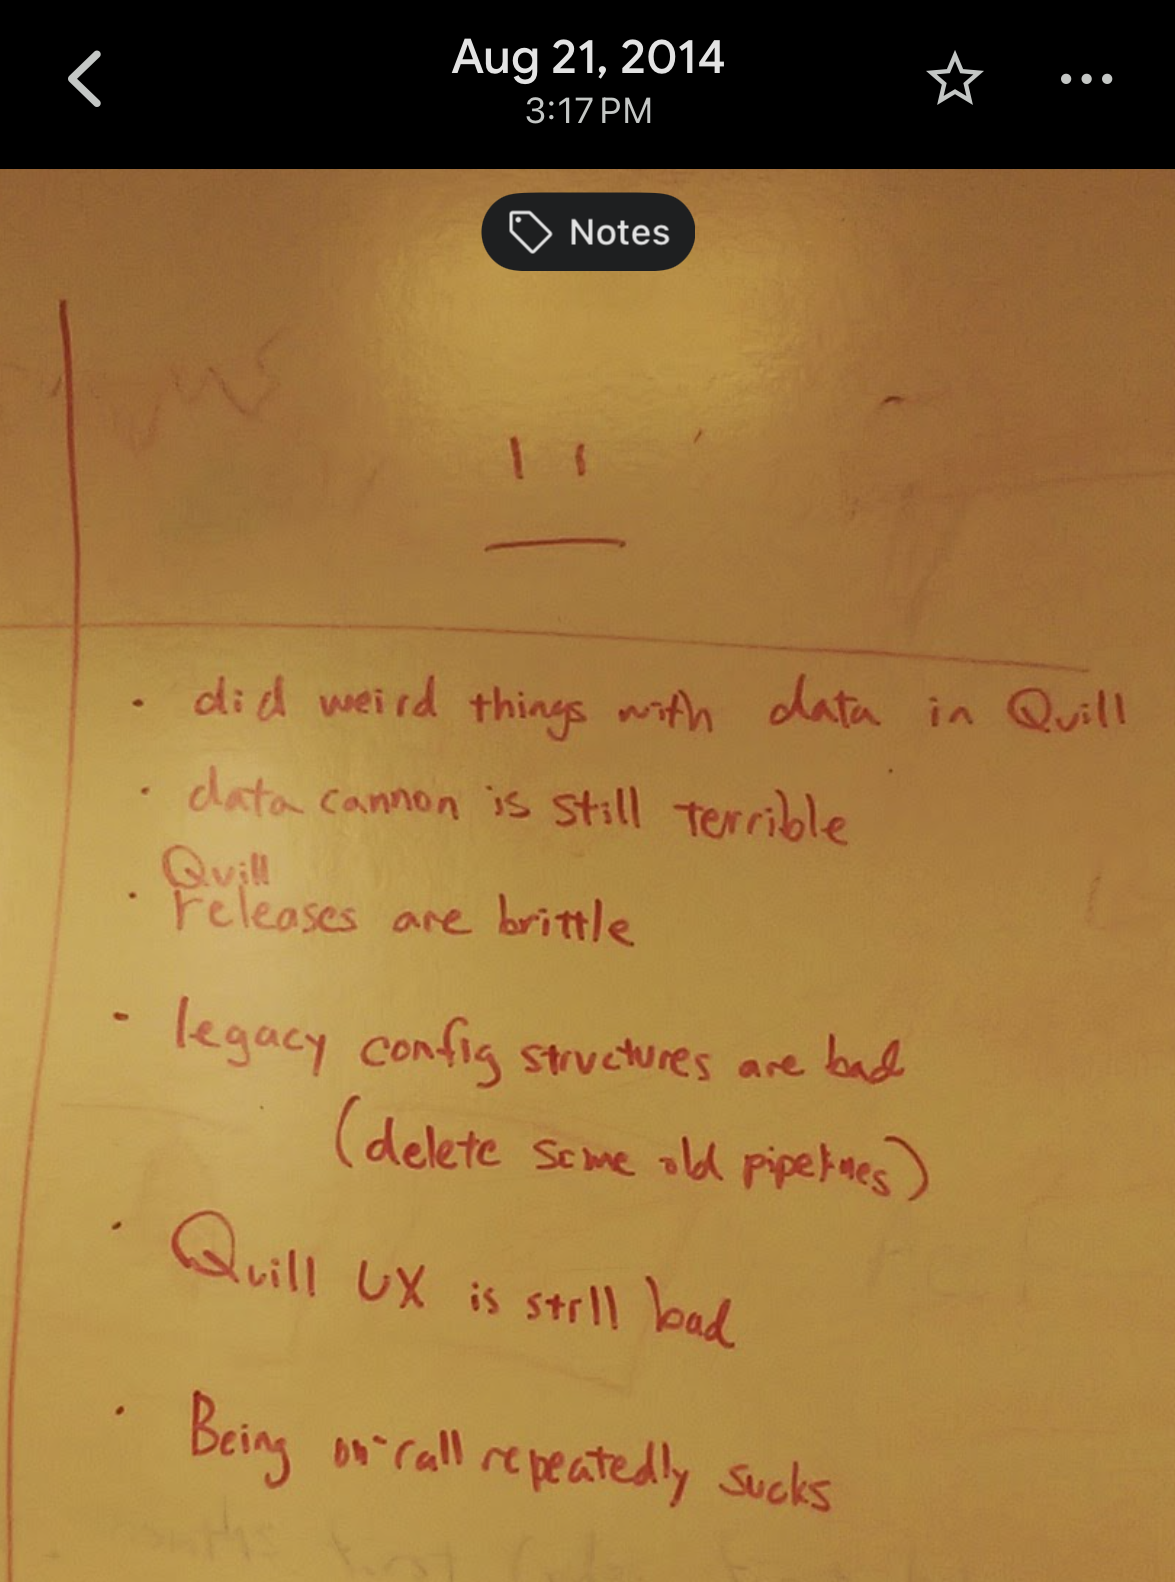 Aug 21, 2014
3:17 PM
Notes
• did weird things with data in Quill
• data cannon is still terrible
Quill
• releases are brittle
- legacy config structures are bad
(delete some old pipelines)
• Quill UX is still bad
• Being on-call repeatedly sucks